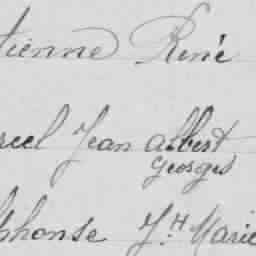 tienne René
rcel Jean albert
Georges
lphonse J.H. Marie